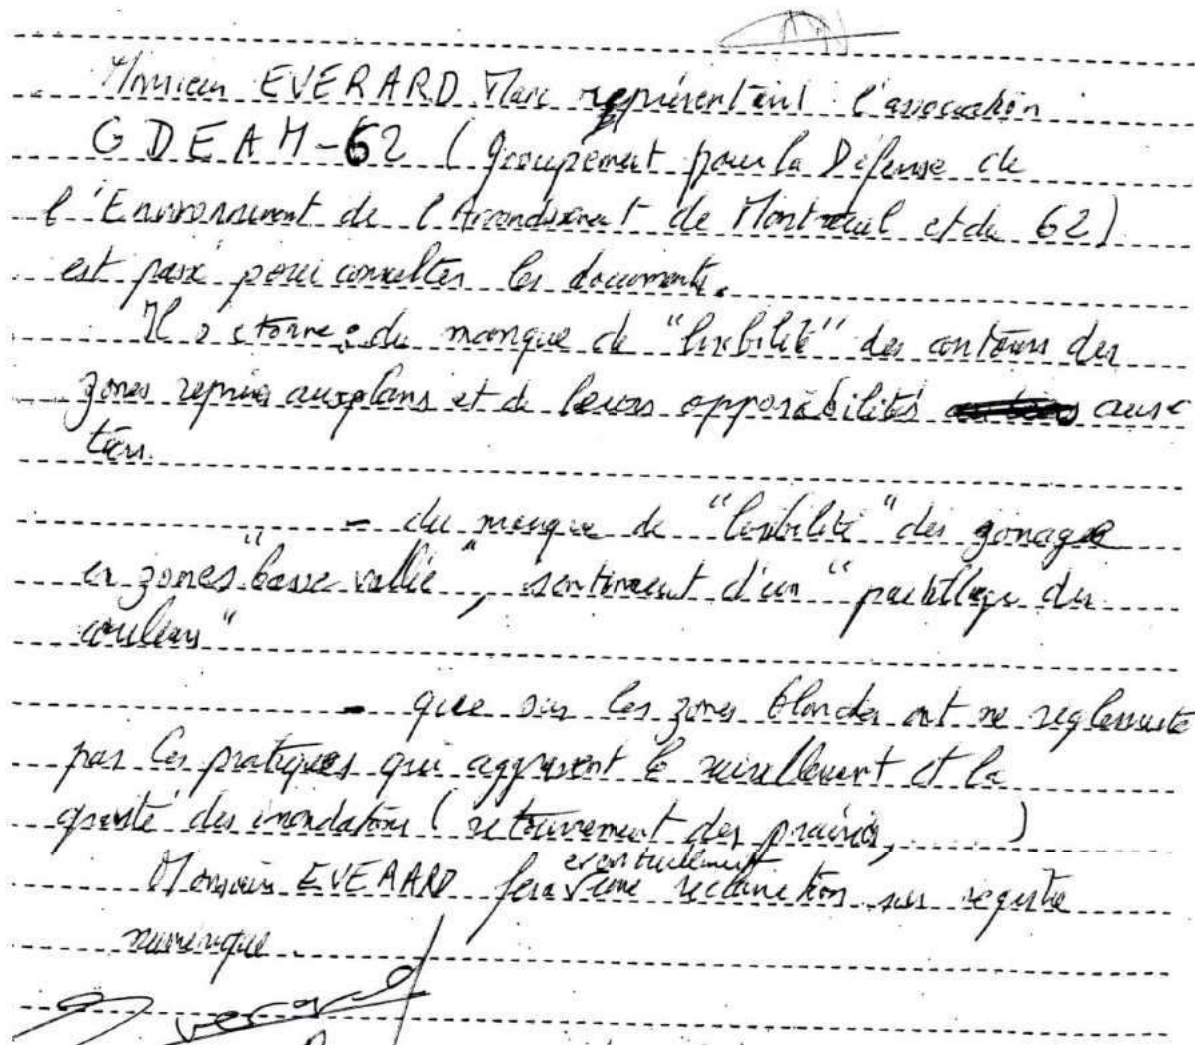 Monsieur EVERARD Marc représentant l'association
GDEAM-62 (Groupement pour la Défense de
l'Environnement de l'Arrondissement de Montreuil et du 62)
est passé pour consulter les documents.
Il s'étonne : du manque de "lisibilité" des contours des
zones repris aux plans et de leurs opposabilités aux
tiers.
- du manque de "lisibilité" des zonages
en zones "basse vallée", sentiment d'un "pastillage des
couleurs"
- que sur les zones blanches on ne réglemente
pas les pratiques qui aggravent le ruissellement et la
gravité des inondations (retournement des prairies, ......)
Monsieur EVERARD fera éventuellement une réclamation sur registre
numérique.
Everard